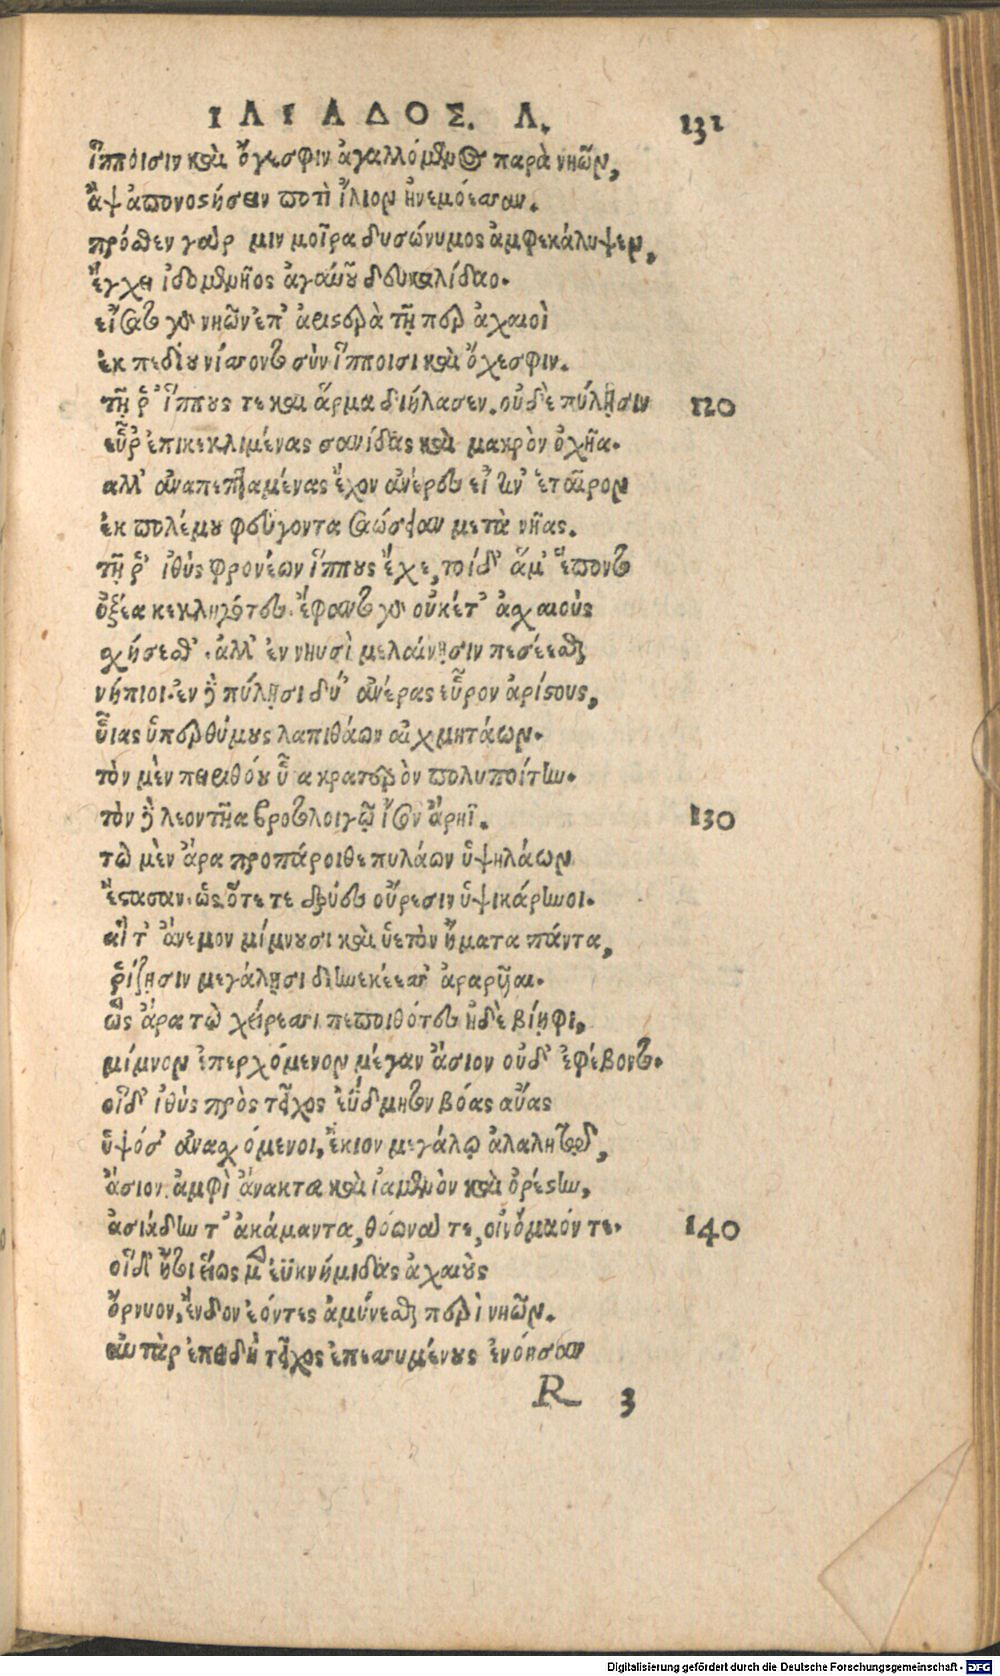 ΙΛΙΑΔΟΣ. Λ. 131
ἵπποισιν καὶ ὄχεσφιν ἀγαλλόμενος παρὰ νηῶν,
ἂψ ἀπονοστήσειν ποτὶ ἴλιον ἠνεμόεσσαν.
πρόσθεν γάρ μιν μοῖρα δυσώνυμος ἀμφεκάλυψεν,
ἔγχει ἰδομενῆος ἀγαυοῦ δευκαλίδαο.
εἴσατο γὰρ νηῶν ἐπ' ἀριστερὰ τῇ περ ἀχαιοὶ
ἐκ πεδίου νίσσοντο σὺν ἵπποισι καὶ ὄχεσφιν.
τῇ ῥ' ἵππους τε καὶ ἅρμα διήλασεν. οὐδὲ πύλῃσιν 120
εὗρ' ἐπικεκλιμένας σανίδας καὶ μακρὸν ὀχῆα.
ἀλλ' ἀναπεπταμένας ἔχον ἀνέρες εἴ τιν' ἑταῖρον
ἐκ πολέμου φεύγοντα σαώσειαν μετὰ νῆας.
τῇ ῥ' ἰθὺς φρονέων ἵππους ἔχε, τοὶ δ' ἅμ' ἕποντο
ὀξέα κεκληγότες. ἔφαντο γὰρ οὐκέτ' ἀχαιοὺς
σχήσεσθ'. ἀλλ' ἐν νηυσὶ μελαίνῃσιν πεσέεσθαι
νήπιοι. ἐν δὲ πύλῃσι δύ' ἀνέρας εὗρον ἀρίστους,
υἷας ὑπερθύμους λαπιθάων αἰχμητάων.
τὸν μὲν πειριθόου υἷα κρατερὸν πολυποίτην.
τὸν δὲ λεοντῆα βροτολοιγῷ ἶσον ἄρηϊ. 130
τὼ μὲν ἄρα προπάροιθε πυλάων ὑψηλάων
ἕστασαν. ὡς ὅτε τε δρύες οὔρεσιν ὑψικάρηνοι.
αἵ τ' ἄνεμον μίμνουσι καὶ ὑετὸν ἤματα πάντα,
ῥίζῃσιν μεγάλῃσι διηνεκέεσσ' ἀραρυῖαι.
ὣς ἄρα τὼ χείρεσσι πεποιθότες ἠδὲ βίηφι,
μίμνον ἐπερχόμενον μέγαν ἄσιον οὐδ' ἐφέβοντο.
οἱ δ' ἰθὺς πρὸς τεῖχος ἐΰδμητον βόας αὔας
ὑψόσ' ἀνασχόμενοι, ἔκιον μεγάλῳ ἀλαλητῷ,
ἄσιον ἀμφὶ ἄνακτα καὶ ἰαμενὸν καὶ ὀρέστην,
ἀσιάδην τ' ἀκάμαντα, θόωνά τε, οἰνόμαόν τε. 140
οἱ δ' ἤτοι εἵως μὲν ἐϋκνήμιδας ἀχαιοὺς
ὄρνυον, ἔνδον ἐόντες ἀμύνεσθαι περὶ νηῶν.
αὐτὰρ ἐπειδὴ τεῖχος ἐπεσσυμένους ἐνόησαν
R 3
Digitalisierung gefördert durch die Deutsche Forschungsgemeinschaft - DFG